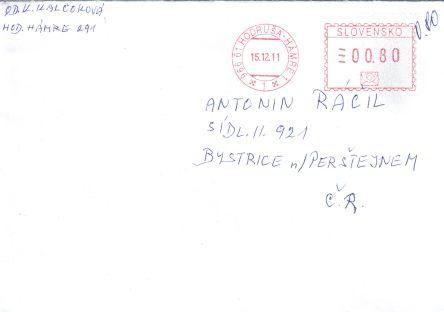 OD. K. KALCOKOVÁ
HOD. HÁMRE 291
966 01 HODRUŠA-HÁMRE 1
15.12.11
1
SLOVENSKO
00.80
ANTONIN RÁCIL
SÍDL. II. 921
BYSTRICE n/PERŠTEJNEM
Č.R.